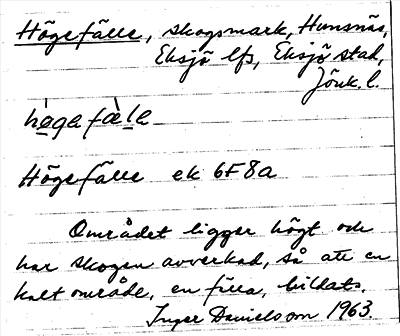 Högefälle, skogsmark, Hunsnäs,
Eksjö lfs, Eksjö stad,
Jönk. l.
hø̀gefæ̀le
Högefälle ek 6F8a
Området ligger högt och
har skogen avverkad, så att en
kalt område, en fälla, bildats.
Inger Danielsson 1963.